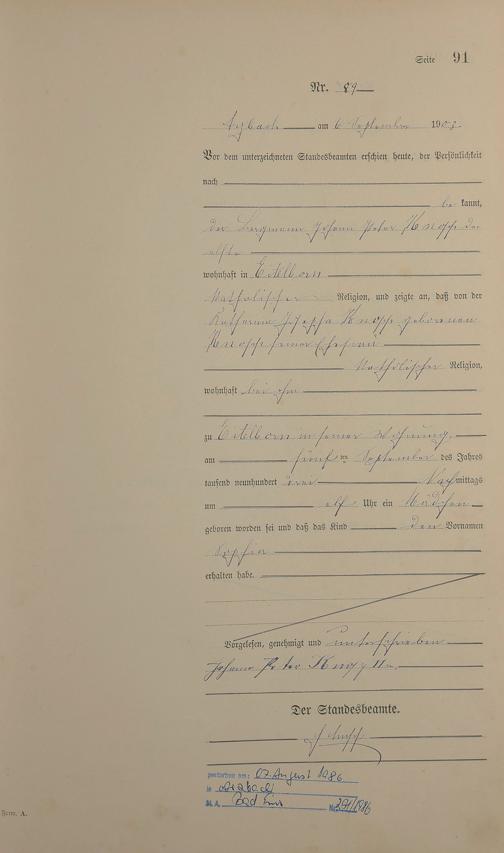 Seite 91
Nr. 89
Arzbach am 6 September 1903.
Vor dem unterzeichneten Standesbeamten erschien heute, der Persönlichkeit
nach
be kannt,
der Bergmann Johann Peter Knopp der
elfte
wohnhaft in Eitelborn
katholischer Religion, und zeigte an, daß von der
Katharina Josepha Knopp geborenen
Knopp seiner Ehefrau
katholischer Religion,
wohnhaft bei ihm
zu Eitelborn in seiner Wohnung,
am fünf ten September des Jahres
tausend neunhundert drei Nachmittags
um elf Uhr ein Mädchen
geboren worden sei und daß das Kind den Vornamen
Sophia
erhalten habe.
Vorgelesen, genehmigt und unterschrieben
Johann Peter Knopp 11
Der Standesbeamte.
gestorben am: 07. August 1986
in Arzbach
St. A. Bad Ems Nr. 291/1986
Form. A.